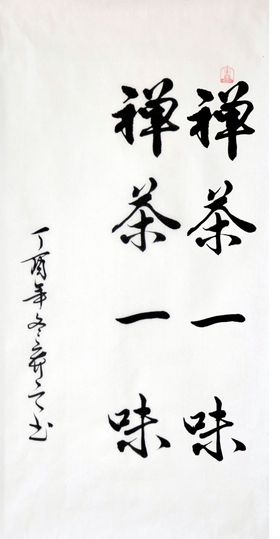 禅茶一味
禅茶一味
丁酉年冬